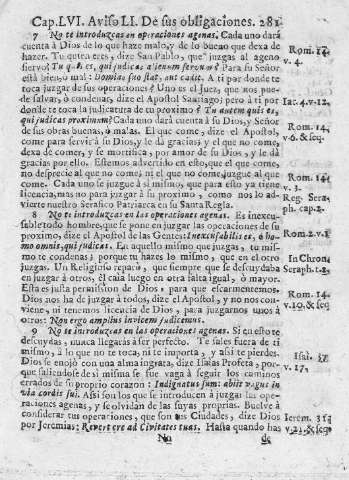 Cap.LVI. Aviso LI. De sus obligaciones. 281
7 No te introduzcas en operaciones agenas. Cada uno dará
cuenta à Dios de lo que haze malo, y de lo bueno que dexa de
hazer. Tu quien eres, dize San Pablo, que juzgas al ageno
siervo? Tu quis es, qui iudicas alienum servum? Para su Señor
está bien, ò mal: Domino suo stat, aut cadit. A ti por donde te
toca juzgar de sus operaciones? Uno es el Juez, que nos puede
salvar, ò condenar, dize el Apostol Santiago; pero à ti por
donde te toca la judicatura de tu proximo? Tu autem quis es,
qui judicas proximum? Cada uno dará cuenta à su Dios, y Señor
de sus obras buenas, ò malas. El que come, dize el Apostol,
come para servir à su Dios, y le dà gracias; y el que no come,
dexa de comer, y se mortifica, por amor de su Dios, y le dà
gracias por ello. Estemos advertido en esto, que el que come,
no desprecie al que no come; ni el que no come, juzgue al que
come. Cada uno se juzgue à si mismo, que para esto ya tiene
licencia, mas no para juzgar à su proximo, como nos lo ad-
vierte nuestro Serafico Patriarca en su Santa Regla.
8 No te introduzcas en las operaciones agenas. Es inexcu-
sable todo hombre, que se pone en juzgar las operaciones de su
proximo, dize el Apostol de las Gentes: Inexcusabilis es, ò ho-
mo omnis, qui judicas. En aquello mismo que juzgas, tu mis-
mo te condenas; porque tu hazes lo mismo, que en el otro
juzgas. Un Religioso reparò, que siempre que se descuydaba
en juzgar à otros, èl caìa luego en otra falta igual, ò mayor.
Esta es justa permission de Dios, para que escarmentemos.
Dios nos ha de juzgar à todos, dize el Apostol, y no nos con-
viene, ni tenemos licencia de Dios, para juzgarnos unos à
otros: Non ergo amplius invicem judicemus.
9 No te introduzcas en las operaciones agenas. Si en esto te
descuydas, nunca llegaràs à ser perfecto. Te sales fuera de ti
mismo, à lo que no te toca, ni te importa, y assi te pierdes.
Dios se enojò con una alma ingrata, dize Isaìas Profeta, por-
que saliendose de si misma se fue vaga à seguir los caminos
errados de su proprio corazon: Indignatus sum: abiit vagus in
via cordis sui. Assi son los que se introducen à juzgar las ope-
raciones agenas, y se olvidan de las suyas proprias. Buelve à
considerar tus operaciones, que son tus Ciudades, dize Dios
por Jeremias: Revertere ad Civitates tuas. Hasta quando has
Nn de
Rom. 14.
v. 4.
Iac. 4. v. 12.
Rom. 14.
v. 6. & seq.
Rom. 14.
v. 3.
Reg. Sera-
ph. cap. 2.
Rom. 2. v. 1.
In Chron.
Seraph. t. 2.
Rom. 14.
v. 10. & seq.
Isai. 57
v. 17.
Ierem. 31
v. 21. & seq.